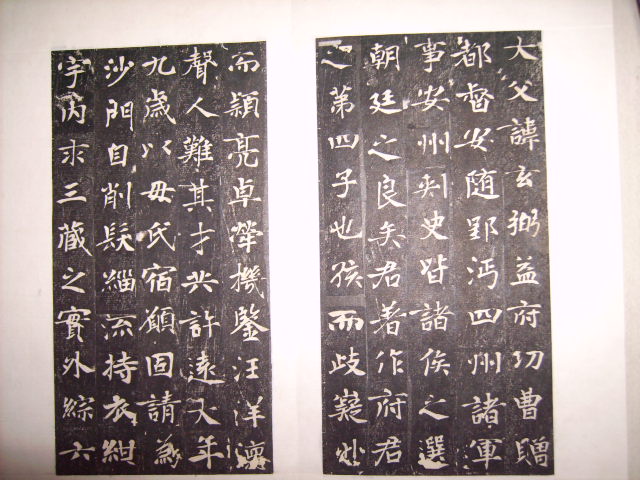 大父諱玄弼益府功曹贈
都督安随郢沔四州諸軍
事安州刾史皆諸侯之選
朝廷之良矣君著作府君
之第四子也孩而歧嶷幼
而穎亮卓犖機鑒汪洋澶
聲人難其才共許遠大年
九歳以母氏宿願固請為
沙門自削髮緇流持衣紺
宇内求三藏之實外綜六